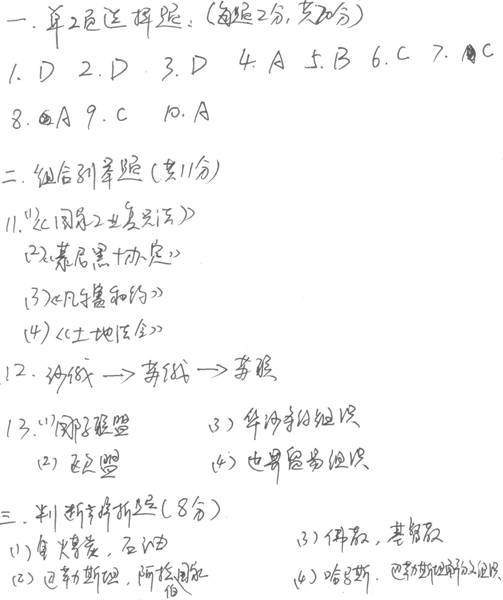 一. 单项选择题：(每题2分，共20分)
1. D 2. D 3. D 4. A 5. B 6. C 7. C
8. A 9. C 10. A
二. 组合列举题(共11分)
11.(1)《国家工业复兴法》
(2)《慕尼黑协定》
(3)《凡尔赛和约》
(4)《土地法令》
12. 沙俄→苏俄→苏联
13.(1)国际联盟 (3)华沙条约组织
(2)欧盟 (4)世界贸易组织
三. 判断辨析题(8分)
(1) 煤炭，石油 (3)佛教，基督教
(2)巴勒斯坦，阿拉伯国家 (4)哈马斯，巴勒斯坦解放组织